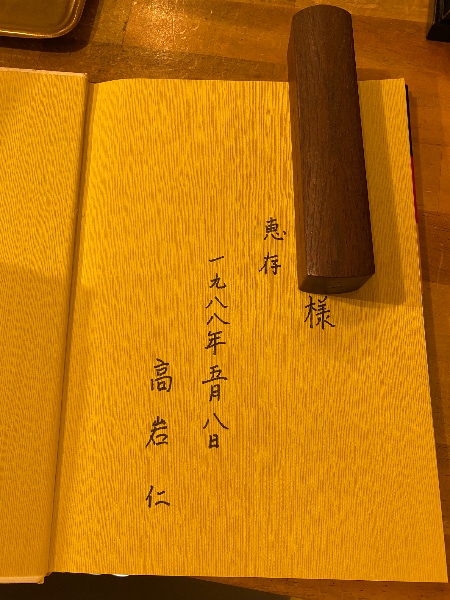 様
恵存
一九八八年五月八日
高岩仁